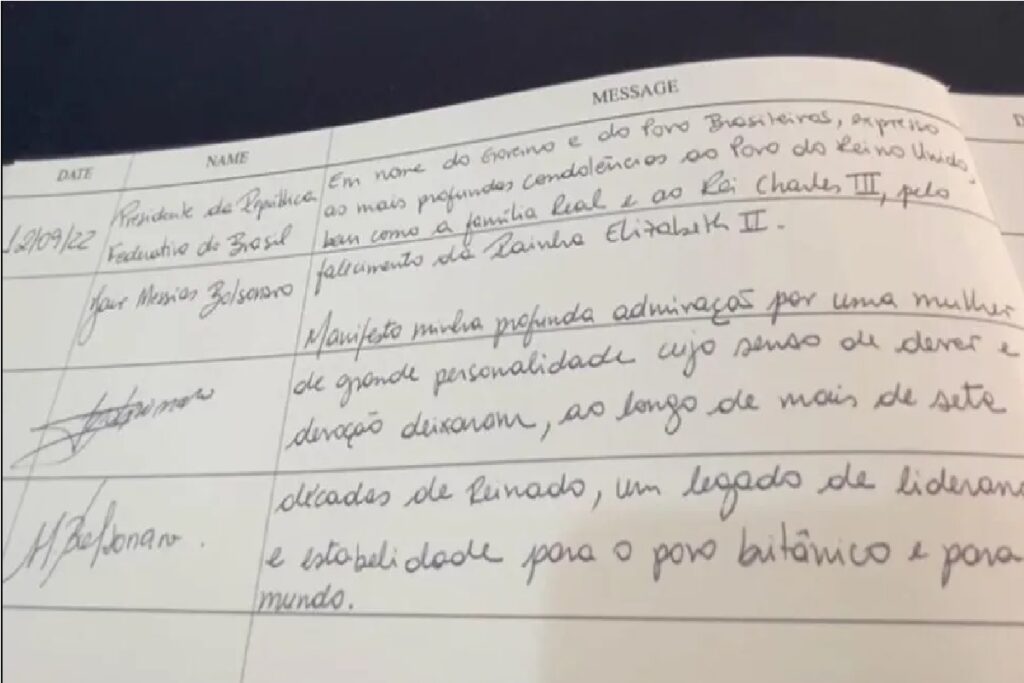 DATE NAME MESSAGE
12/09/22
Presidente da República
Federativa do Brasil
Jair Messias Bolsonaro
Bolsonaro
M Bolsonaro.
Em nome do Governo e do Povo Brasileiros, expresso
as mais profundas condolências ao Povo do Reino Unido,
bem como à família Real e ao Rei Charles III, pelo
falecimento da Rainha Elizabeth II.
Manifesto minha profunda admiração por uma mulher
de grande personalidade cujo senso de dever e
devoção deixaram, ao longo de mais de sete
décadas de Reinado, um legado de lideran
e estabelidade para o povo britânico e para
mundo.
D